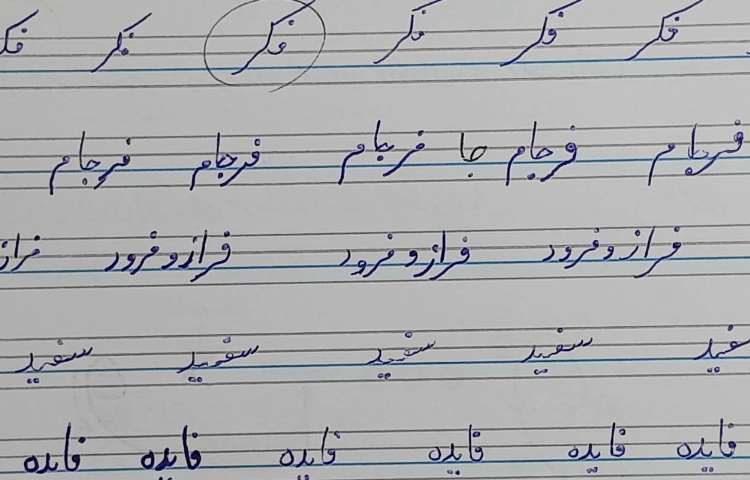 فکر فکر فکر فکر فکر فک
فرجام فرجام جا فرجام فرجام فرجام
فراز و فرود فراز و فرود فراز و فرود فراز
سفید سفید سفید سفید سفید
فایده فایده فایده فایده فایده فایده